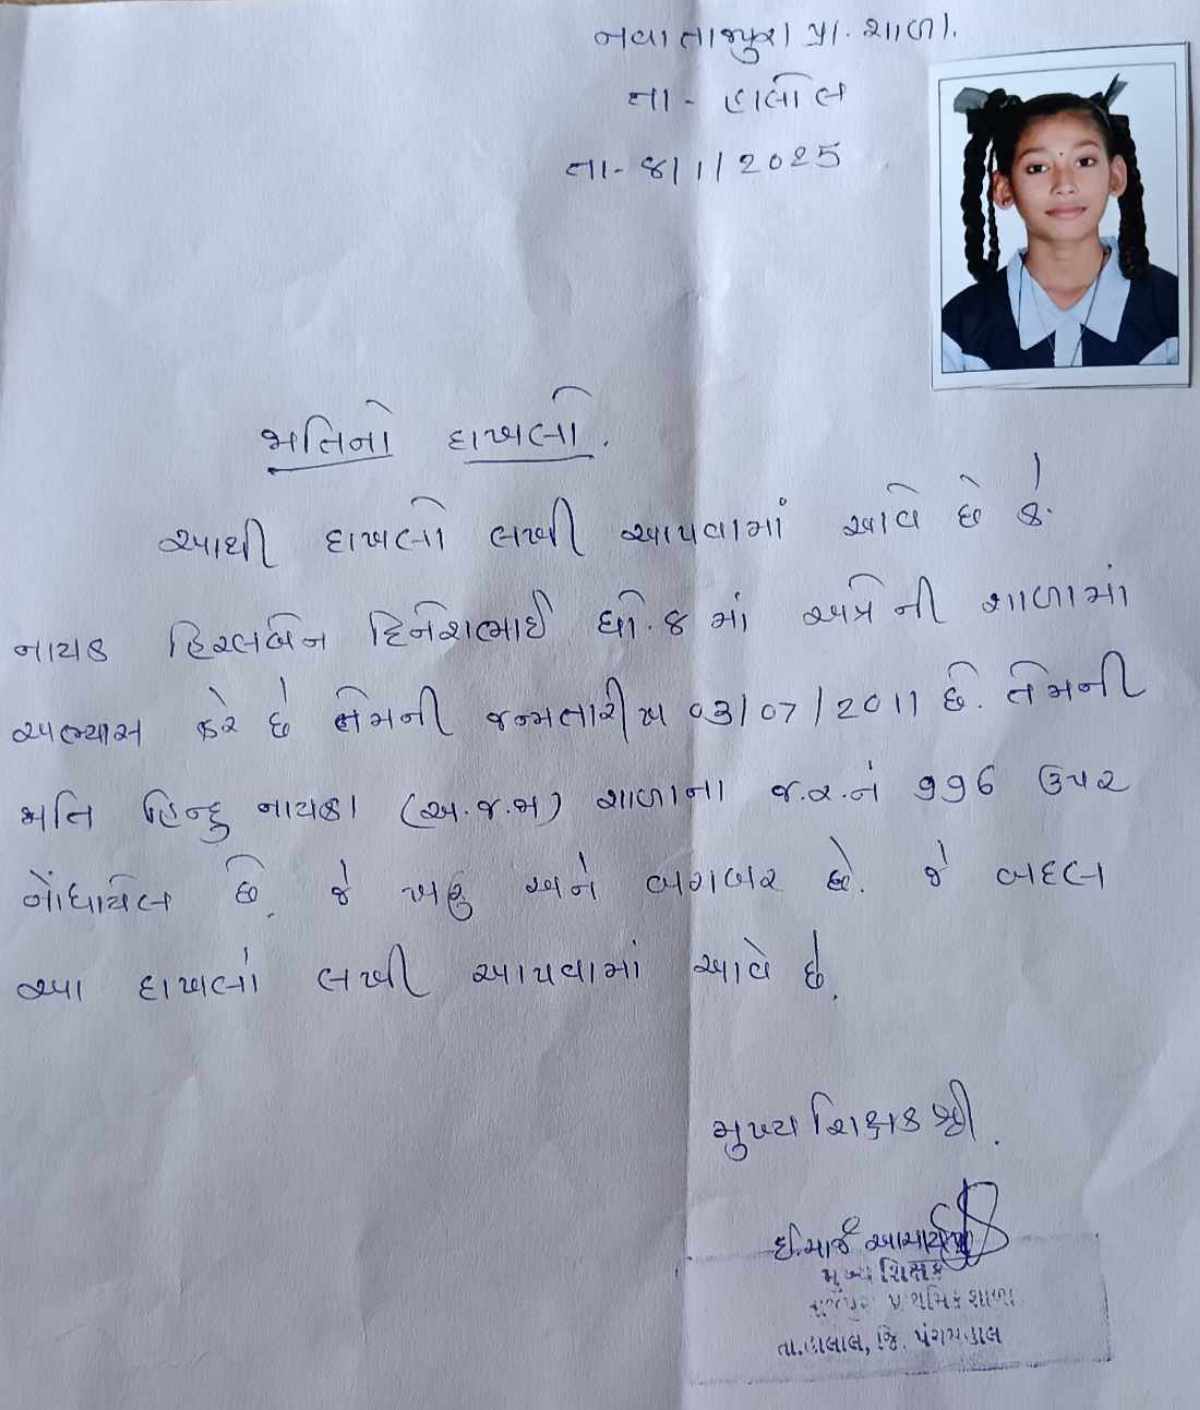 નવા તાજપુરા પ્રા. શાળા.
તા - હાલોલ
તા - ૪/૧/2025
જાતિનો દાખલો.
આથી દાખલો લખી આપવામાં આવે છે કે.
નાયક હિરલબેન દિનેશભાઈ ધો.૪ માં અત્રેની શાળામાં
અભ્યાસ કરે છે તેમની જન્મતારીખ 03/07/2011 છે. તેમની
જાતિ હિન્દુ નાયકા (અ.જ.જા) શાળાના જ.ર.નં ૧૧6 ઉપર
નોંધાયેલ છે. જે ખરુ અને બરાબર છે. જે બદલ
આ દાખલો લખી આપવામાં આવે છે.
મુખ્ય શિક્ષક શ્રી.
ઈ.ચાર્જ આચાર્ય
મુખ્ય શિક્ષક
તાજપુરા પ્રાથમિક શાળા
તા.હાલોલ, જિ. પંચમહાલ